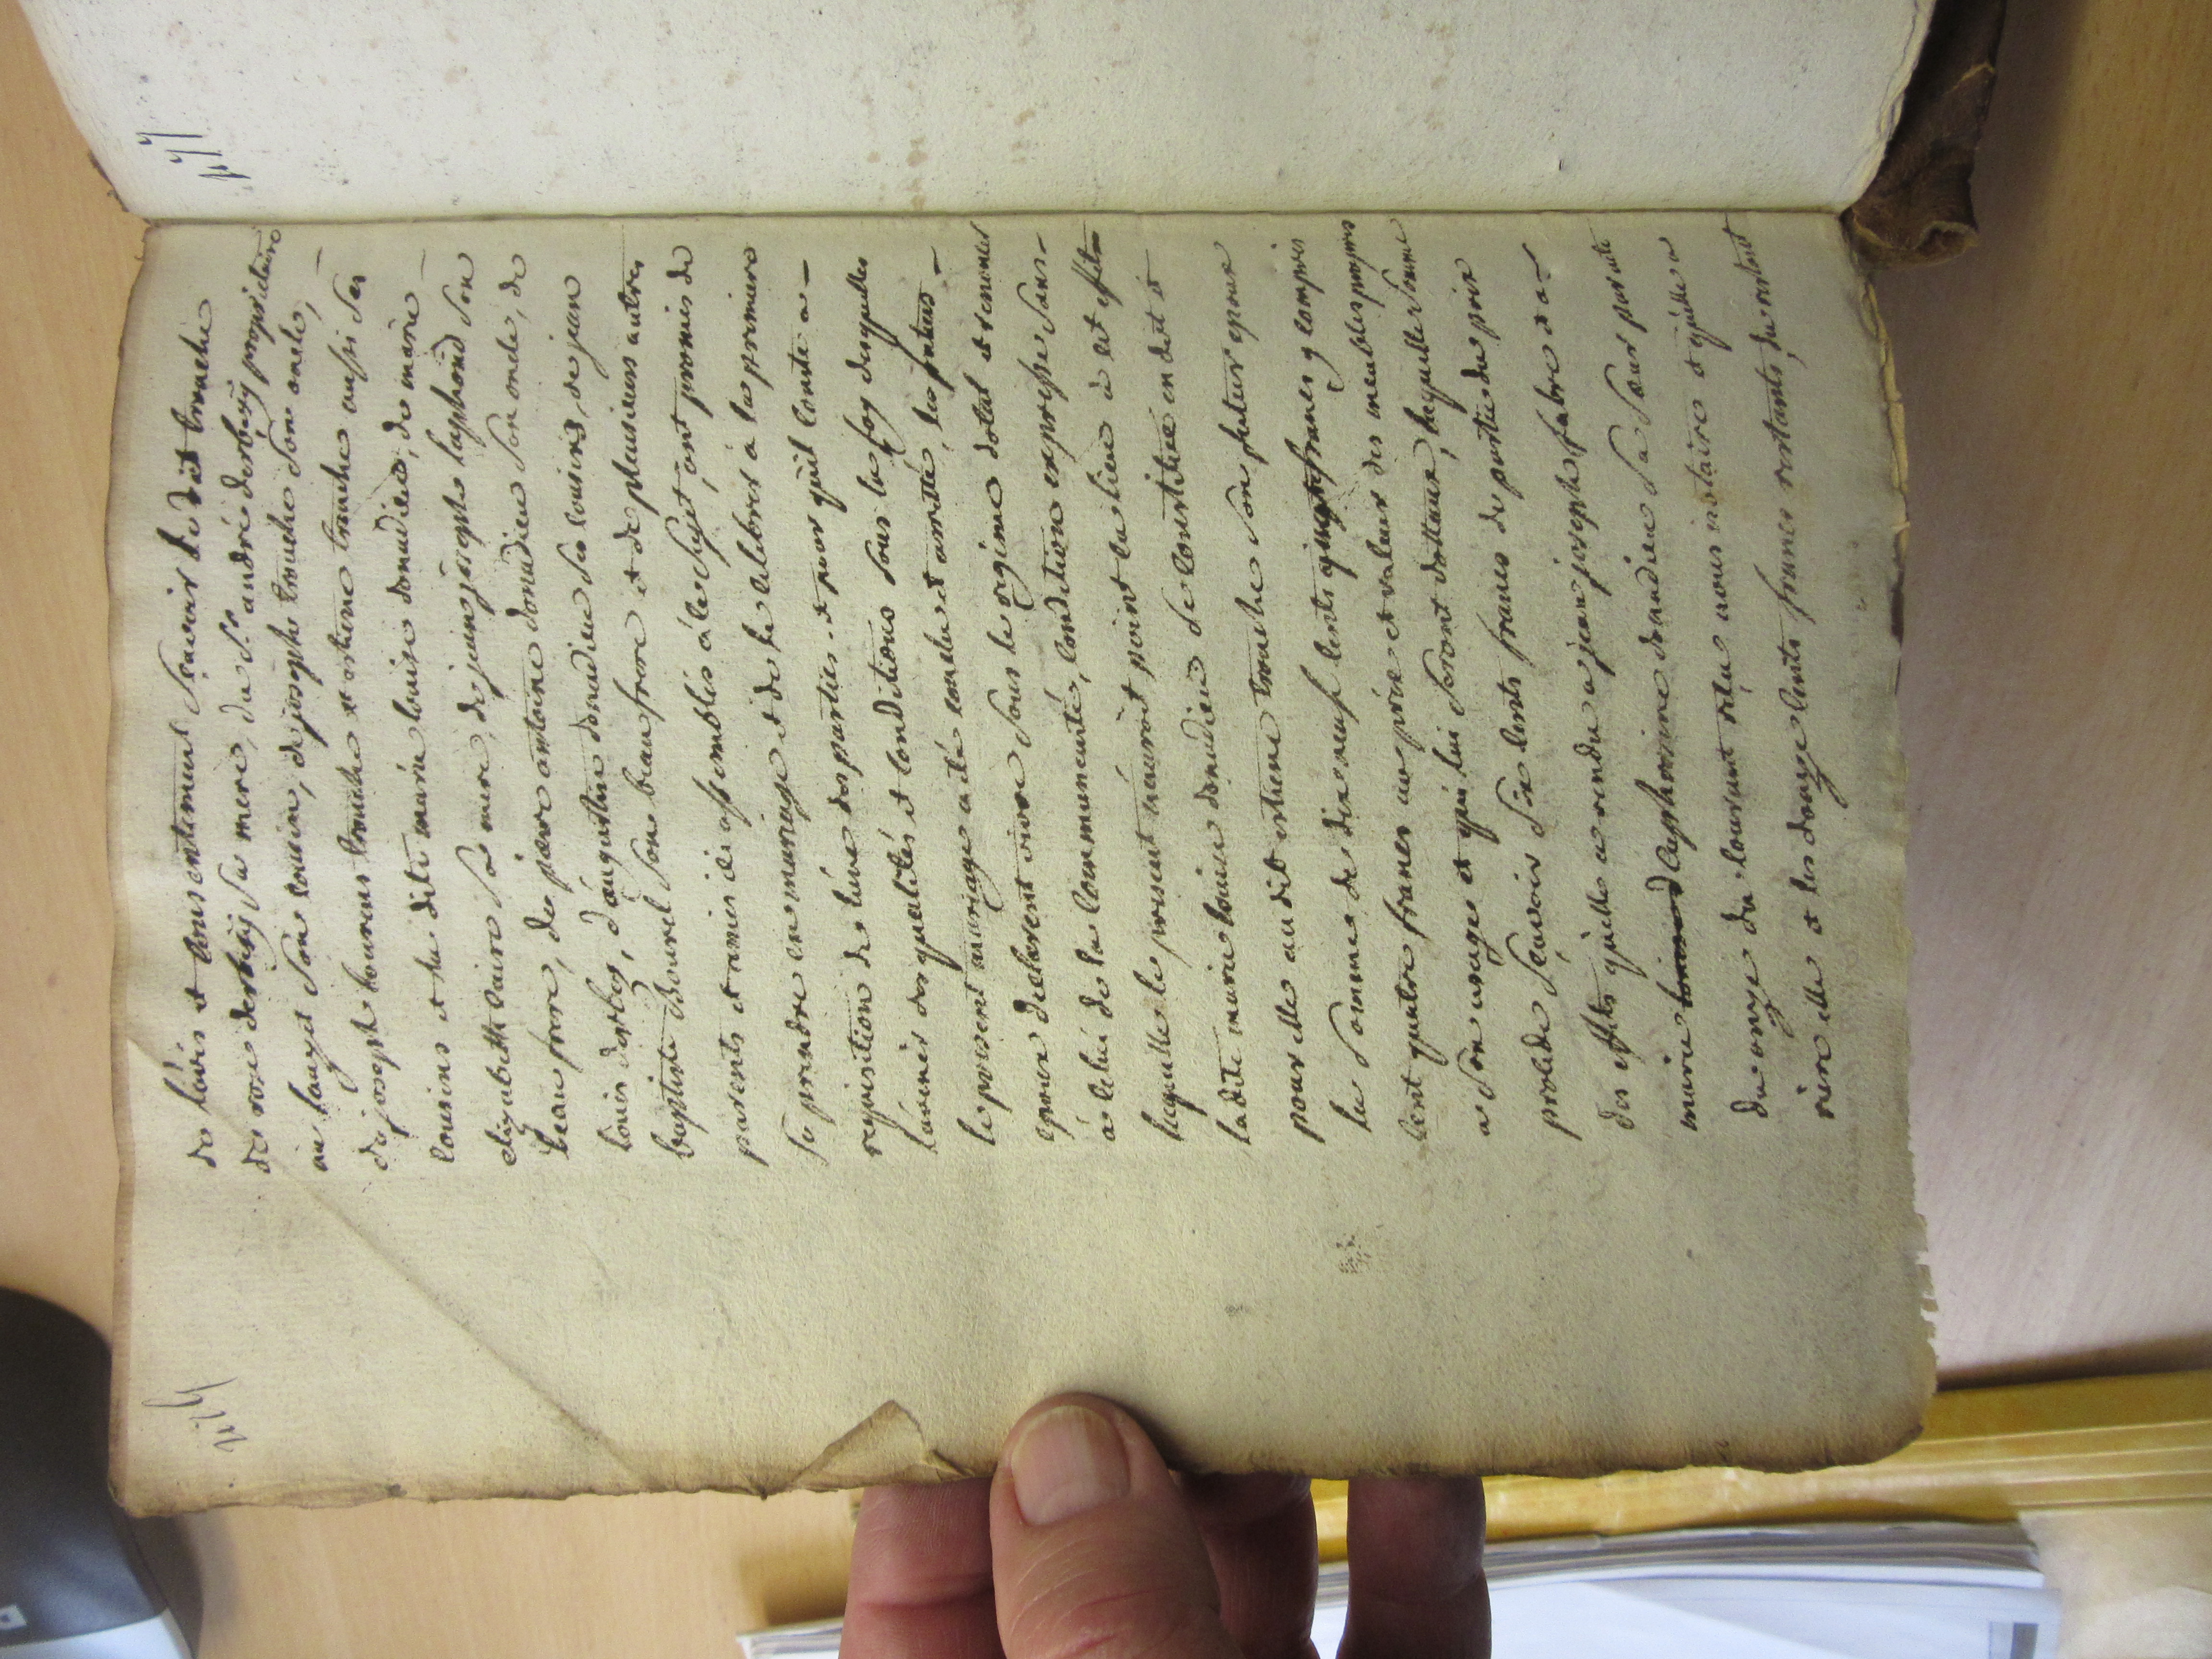 de lavis et consentement sçavoir le dit trouche
de rose derbesy sa mere, du sr andré derbesy proprietaire
au lauzet son cousin, de joseph trouche son oncle,
de joseph bourcus trouche et estiene trouche aussi ses
cousins et la dite marie louise donadieu, de marie
elizabeth laire sa mere, de jean joseph laphond son
beau frere, de pierre antoine donadieu son oncle, de
louis derbes, d'augustin donadieu ses cousins, de jean
baptiste Bourel son beau frere et de plusieurs autres
parents et amies ici assemblés à ce sujet, ont promis de
se prendre en mariage et de le celebrer à la premiere
requisition de l'une des parties. et pour qu'il conste a
l'avenir des qualités et conditions sous la foy desquelles
le present mariage a été conclu et arretté, les futurs
epoux declarent vivre sous le regime dotal et renoncer
à celui de la communauté, condition expresse sans
laquelle le present n'auroit point eu lieu à cet effet
ladite marie louise donadieu se constitue en dot et
pour elle audit estiene trouche son futur epoux
la somme de dix neuf cents francs y compris
cent quatre francs au prix et valeur des meubles propres
a son usage et qui lui seront dottaux, laquelle somme
procede sçavoir six cents francs de partie du prix
des effets qu'elle a vendu a jean joseph fabre et a
marie euphrosine donadieu sa sœur par acte
du onze du courant reçu nous notaire et qu'elle a
rière elle et les douze cents francs restants, du restant